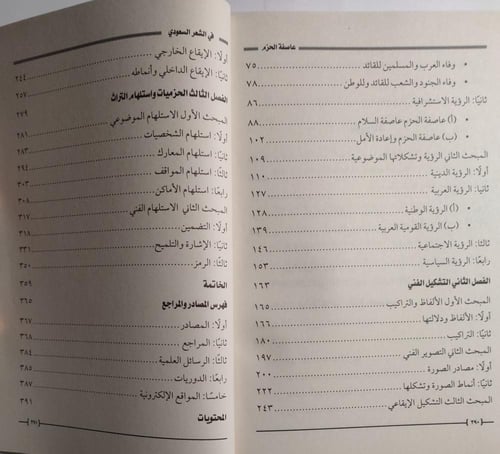 عاصفة الحزم
• وفاء العرب والمسلمين للقائد ٧٥
• وفاء الجنود والشعب للقائد وللوطن ٧٨
ثانيًا: الرؤية الاستشرافية ٨٦
• (أ) عاصفة الحزم عاصفة السلام ٨٨
• (ب) عاصفة الحزم وإعادة الأمل ١٠٢
المبحث الثاني الرؤية وتشكلاتها الموضوعية ١٠٩
أولًا: الرؤية الدينية ١١٠
ثانيا: الرؤية العربية ١٢٧
• (أ) الرؤية الوطنية ١٢٨
• (ب) الرؤية القومية العربية ١٣٩
ثالثا: الرؤية الاجتماعية ١٤٦
رابعًا: الرؤية السياسية ١٥٣
الفصل الثاني التشكيل الفني ١٦٣
المبحث الأول الألفاظ والتراكيب ١٦٥
أولًا: الألفاظ ودلالتها ١٦٦
ثانيًا: التراكيب ١٨٠
المبحث الثاني التصوير الفني ١٩٧
أولًا: مصادر الصورة ٢٠٠
ثانيًا: أنماط الصورة وتشكلها ٢٢٢
المبحث الثالث التشكيل الإيقاعي ٢٤٣
في الشعر السعودي
أولًا: الإيقاع الخارجي ٢٤٤
ثانيًا: الإيقاع الداخلي وأنماطه ٢٥٧
الفصل الثالث الحزميات واستلهام التراث ٢٧٩
المبحث الأول الاستلهام الموضوعي ٢٨١
أولًا: استلهام الشخصيات ٢٨٣
ثانيًا: استلهام المعارك ٢٩٤
ثالثًا: استلهام المواقف ٣٠٣
رابعًا: استلهام الأماكن ٣٠٨
المبحث الثاني الاستلهام الفني ٣١٧
أولًا: التضمين ٣١٨
ثانيًا: الإشارة والتلميح ٣٣١
ثالثًا: الرمز ٣٥٠
الخاتمة ٣٥٩
فهرس المصادر والمراجع ٣٦٥
أولًا: المصادر ٣٦٧
ثانيًا: المراجع ٣٦٨
ثالثًا: الرسائل العلمية ٣٨٤
رابعًا: الدوريات ٣٨٥
خامسًا: المواقع الإلكترونية ٣٨٧
المحتويات ٣٩١